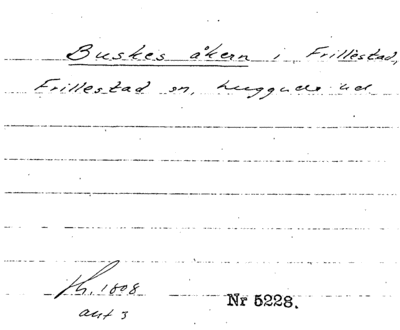 Buskes åkern i Frillestad,
Frillestad sn, Luggude hd
th. 1808
akt 3
Nr 5228.